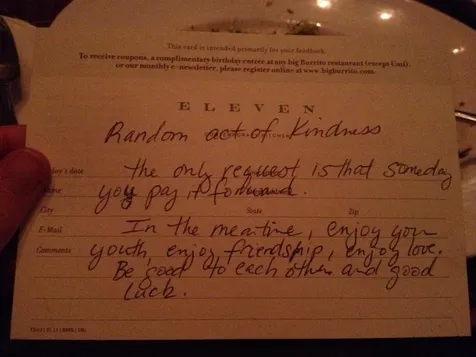 This card is intended primarily for your feedback.
To receive coupons, a complimentary birthday entrée at any big Burrito restaurant (except Umi)
or our monthly e-newsletter, please register online at www.bigburrito.com.
ELEVEN
Random act of Kindness
the only request is that someday
you pay it forward.
City State Zip
In the meantime, enjoy your
E-Mail
youth, enjoy friendship, enjoy love.
Comments
Be good to each other and good
luck.